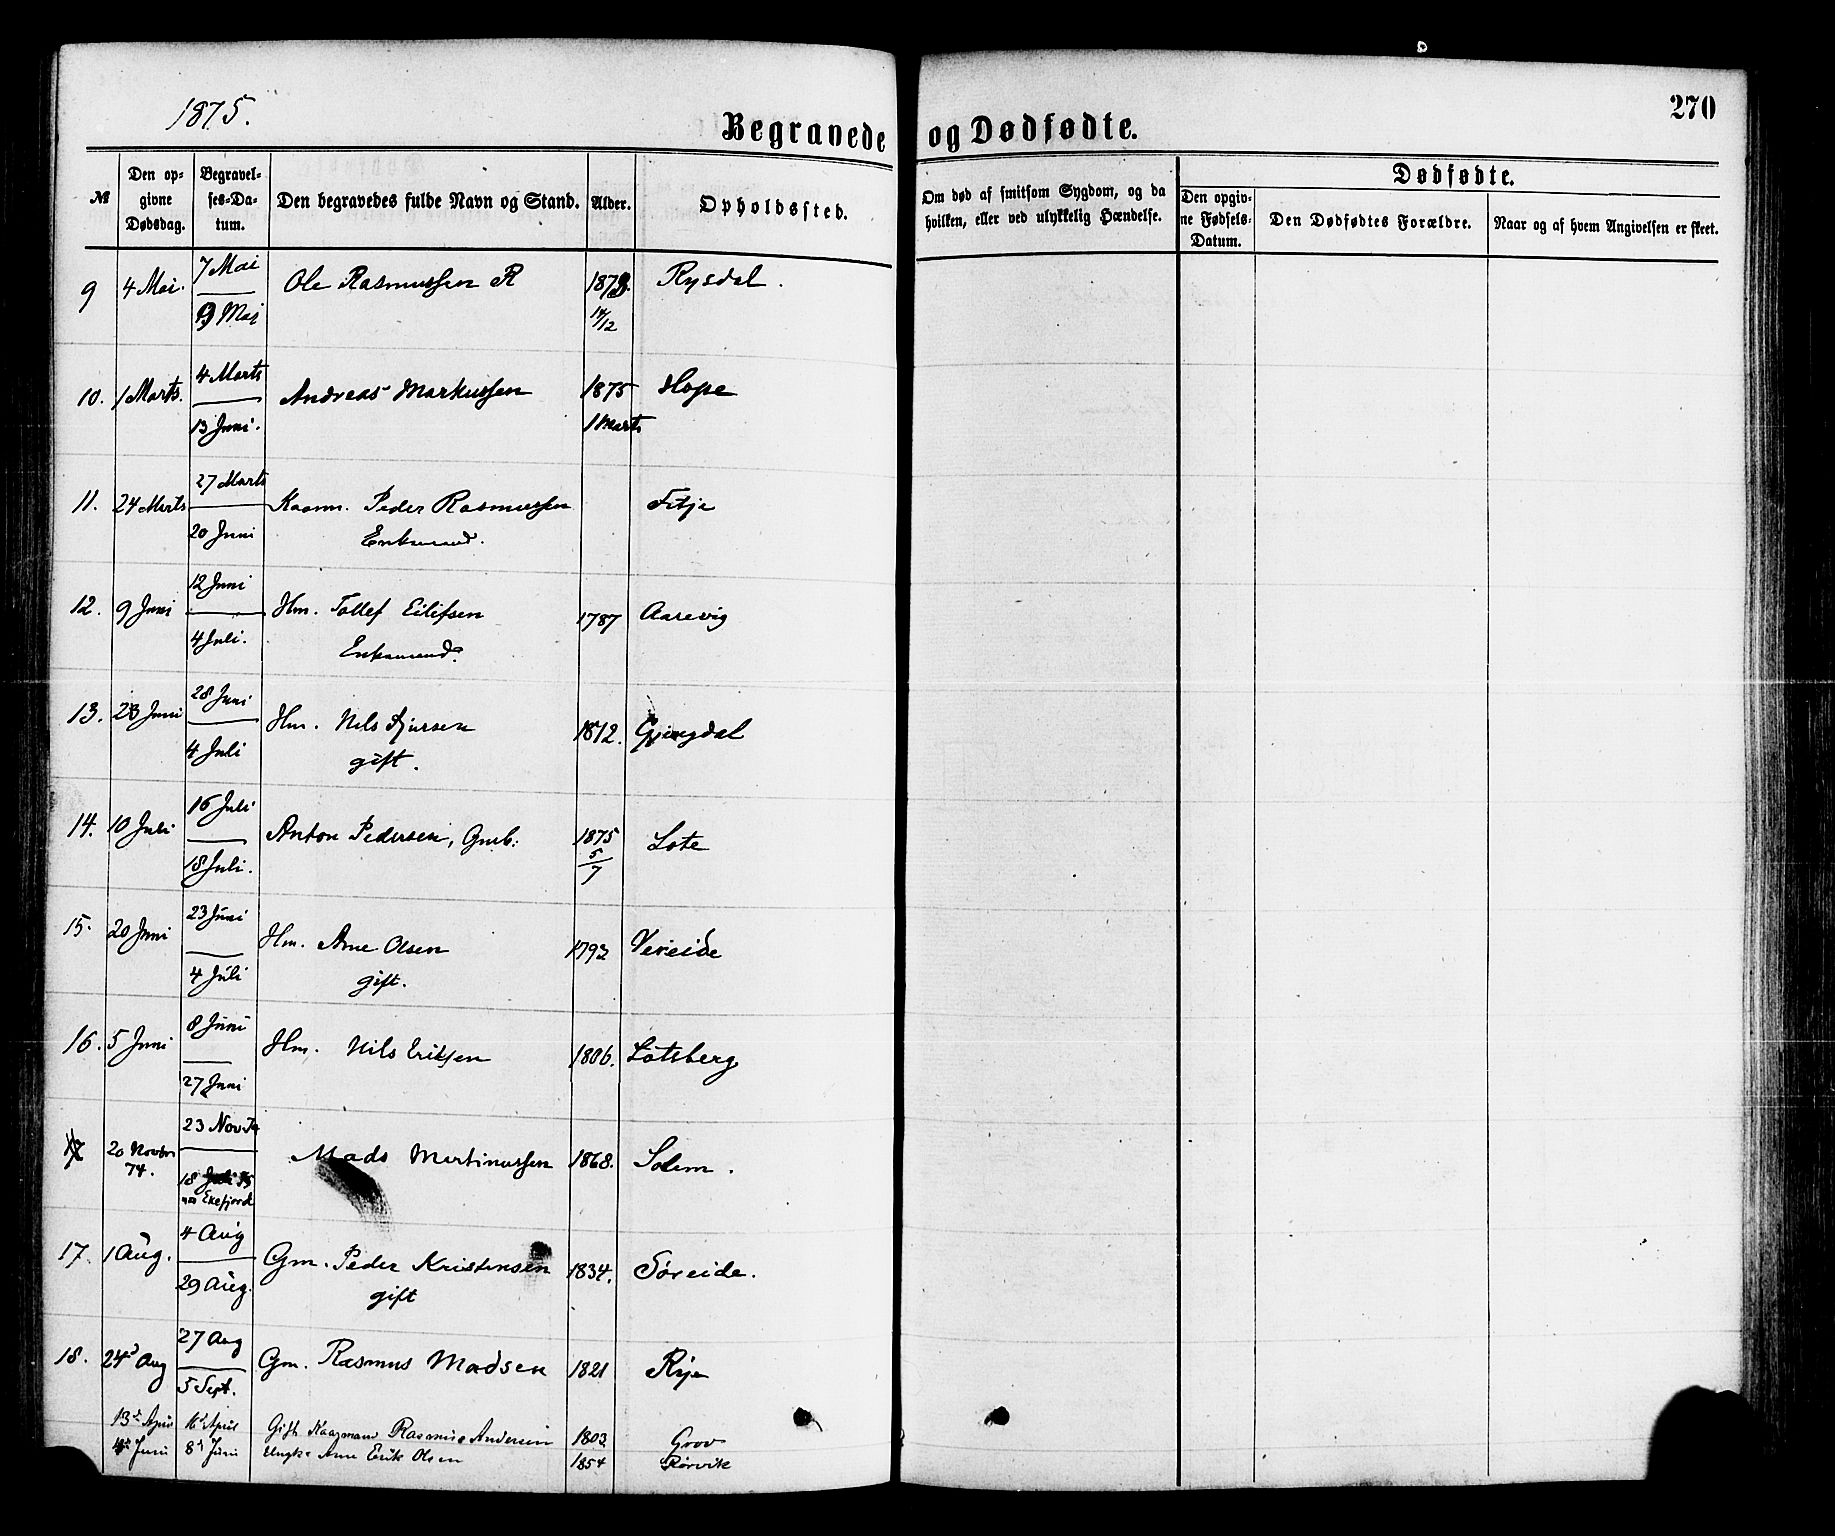 1875.
270
Begravede og Dødfødte.
№
Den opgivne Dødsdag.
Begravelses-Datum.
Den begravedes fulde Navn og Stand.
Alder.
Opholdssted.
Om død af smitsom Sygdom, og da hvilken, eller ved ulykkelig Hændelse.
Dødfødte.
Den opgivne Fødsels-Datum.
Den Dødfødtes Forældre.
Naar og af hvem Angivelsen er skeet.
7 Mai
9 4 Mai. Ole Rasmussen R 1873. Rysdal.
9 Mai 14/12
4 Marts
10. 1 Marts. Andreas Markussen 1875 Hope
13 Juni. 1 Marts
27 Marts
11. 24 Marts Kaarm. Peder Rasmussen Fitje
20 Juni Enkemand.
12 Juni
12. 9 Juni Hm. Tollef Eilifsen 1787 Aarevig
4 Juli. Enkemand.
28 Juni
13. 23 Juni Hm. Nils 1812. Gjengdal
4 Juli gift.
16 Juli
14. 10 Juli Anton Pedersen, Gmb: 1875 Lote
18 Juli. 5/7
23 Juni
15. 20 Juni Hm. Arne Olsen 1793 Vereide
4 Juli gift.
8 Juni
16. 5 Juni Hm. Nils Eriksen 1806. Lotsberg
27 Juni
23 Nov 74
17 20 Novbr 74. Mads Martinussen 1868. Solem.
18 Juli 75
4 Aug
17. 1 Aug. Gm. Peder Kristensen 1834. Søreide.
29 Aug. gift
27 Aug
18. 24d Aug Gm. Rasmus Madsen 1821 Ryg
5 Sept.
13d April 16d April Gift Kaarmand Rasmus Andersen 1803 Grov
4d Juni 8d Juni Ungk. Arne Erik Olsen 1854 Rørvik